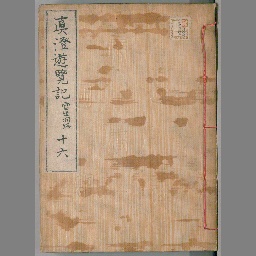 真澄遊覽記
十六